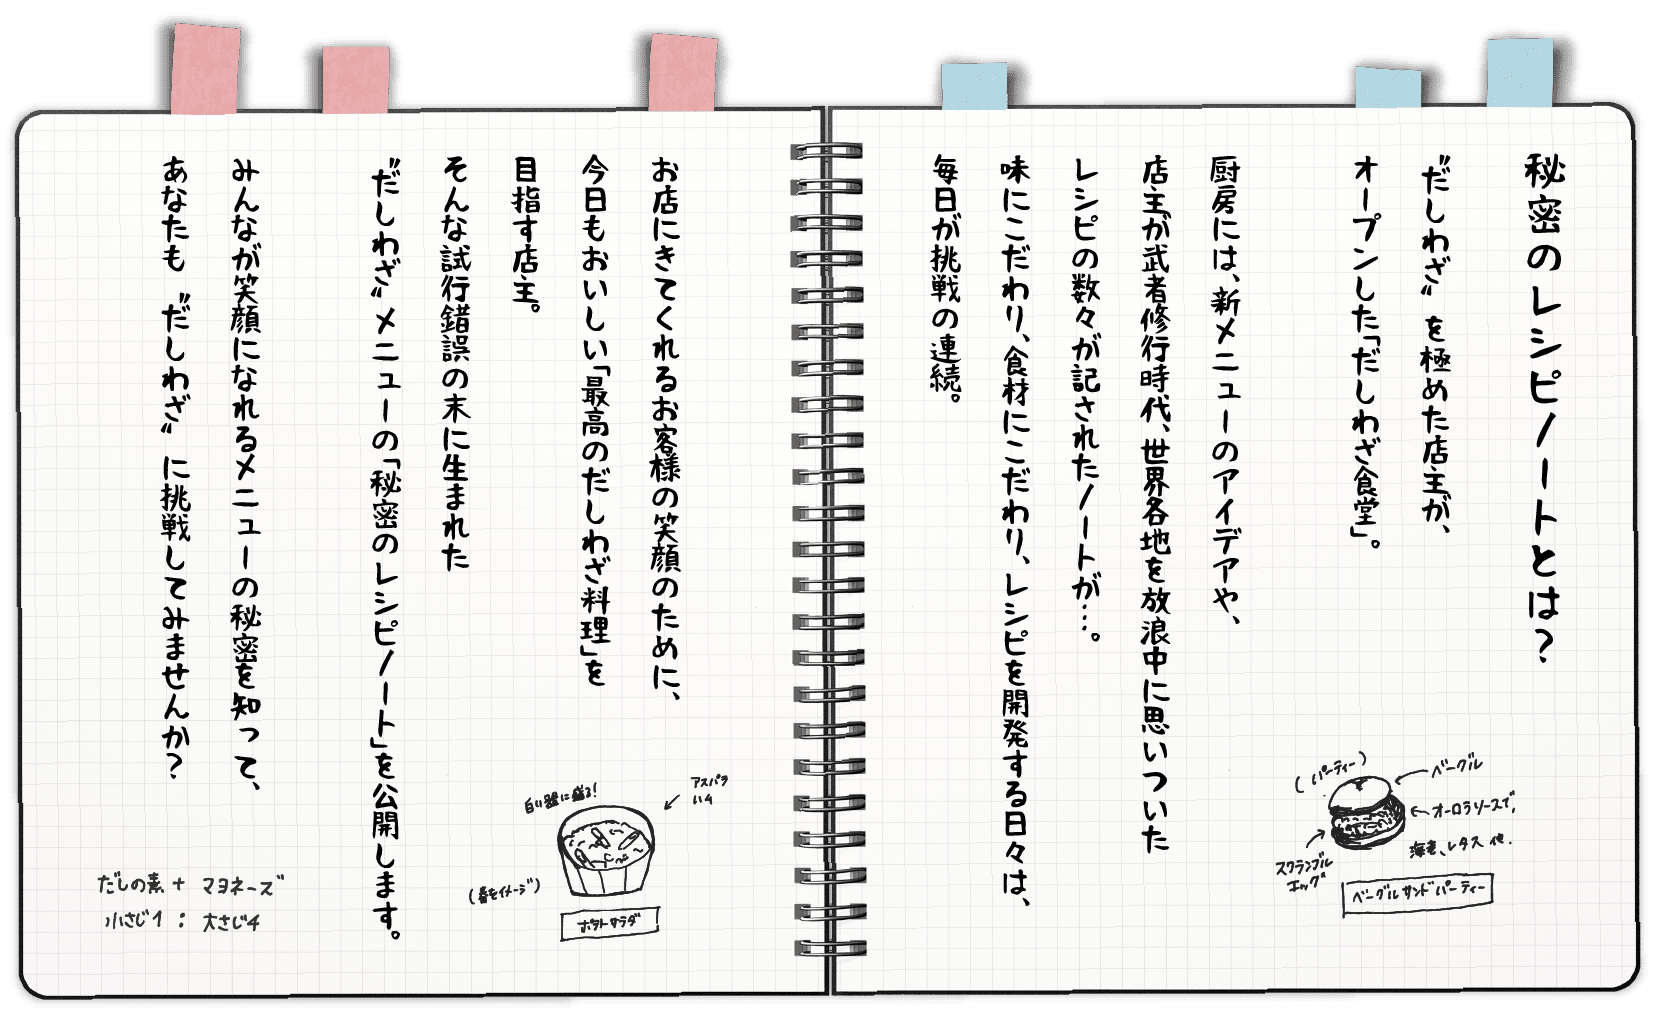 秘密のレシピノートとは?
〝だしわざ〟を極めた店主が、
オープンした「だしわざ食堂」。
厨房には、新メニューのアイデアや、
店主が武者修行時代、世界各地を放浪中に思いついた
レシピの数々が記されたノートが…。
味にこだわり、食材にこだわり、レシピを開発する日々は、
毎日が挑戦の連続。
(パーティー)
ベーグル
オーロラソースで、
海老、レタス 他.
スクランブル
エッグ
ベーグルサンドパーティー
お店にきてくれるお客様の笑顔のために、
今日もおいしい「最高のだしわざ料理」を
目指す店主。
そんな試行錯誤の末に生まれた
〝だしわざ〟メニューの「秘密のレシピノート」を公開します。
みんなが笑顔になれるメニューの秘密を知って、
あなたも〝だしわざ〟に挑戦してみませんか?
白い器に盛る!
アスパラ
いり
(春をイメージ)
ポテトサラダ
だしの素 + マヨネーズ
小さじ1 : 大さじ4